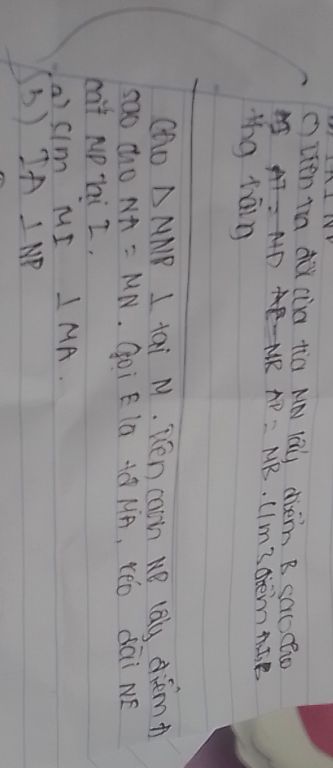 c) trên tia đối của tia MN lấy điểm B sao cho
AP = MB. C/m 3 điểm A,I,B
thg hàng
Cho Δ MNP ⊥ tại M. Trên cạnh NP lấy điểm A
sao cho NA = MN. Gọi E là tđ MA, kéo dài NE
cắt MP tại I.
a) C/m MI ⊥ MA.
b) IA ⊥ NP